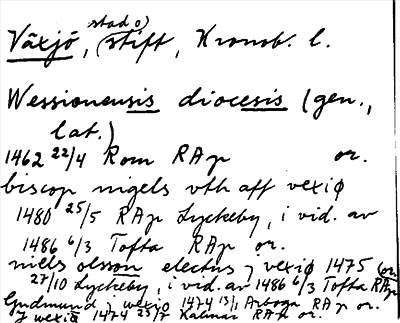 Växjö, (stad o) stift, Kronob. l.
Wessionensis diocesis (gen.,
lat.)
1462 22/4 Rom RAp or.
biscop nigels vth aff vexiø
1480 25/5 RAp Lyckeby, i vid. av
1486 6/3 Tofta RAp or.
niels olsson electus j vexiø 1475 (or.
27/10 Lyckeby, i vid. av 1486 6/3 Tofta RAp
Gudmund j wexio 1474 13/1 Arboga RAp or.
J wexiø 1474 25/7 Kalmar RAp or.